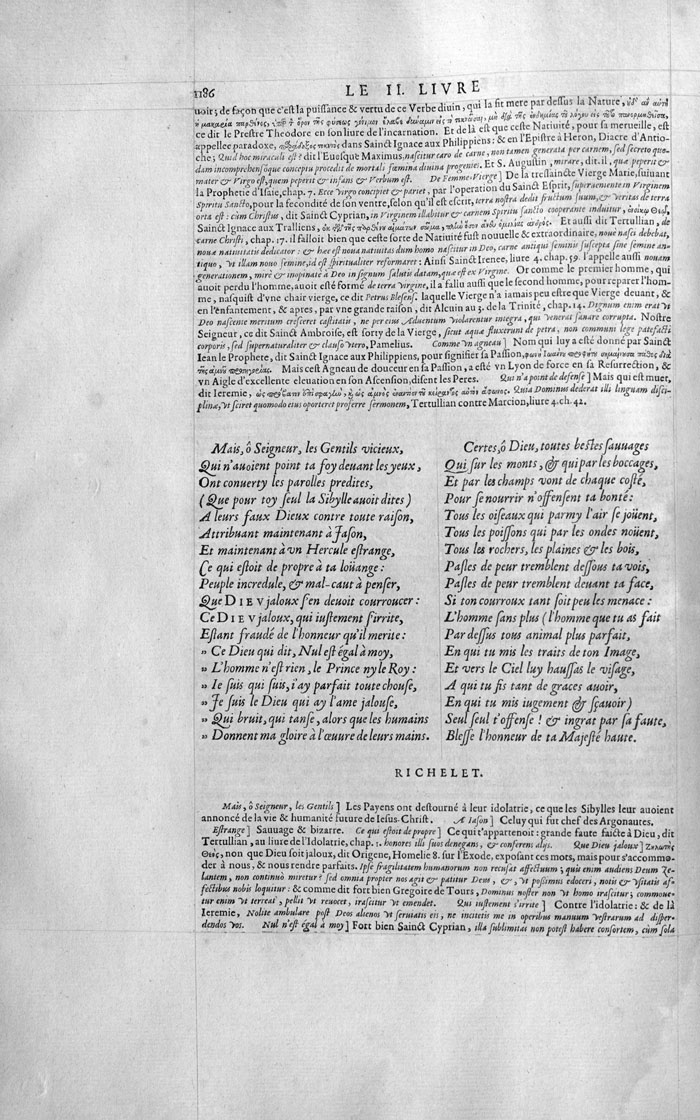 1186
LE II. LIVRE
uoir; de façon que c'est la puissance & vertu de ce Verbe diuin, qui la fit mere par dessus la Nature,
ce dit le Prestre Theodore en son liure de l'incarnation. Et de là est que ceste Natiuité, pour sa merueille, est
appellee paradoxe, dans Sainct Ignace aux Philippiens: & en l'Epistre à Heron, Diacre d'Antio-
che; Quid hoc miraculi est? dit l'Euesque Maximus, nascitur caro de carne, non tamen generata per carnem, sed secreto que-
dam incomprehensoque conceptu procedit de mortali fœmina diuina progenies. Et S. Augustin, mirare, dit-il, quæ peperit &
mater & Virgo est, quem peperit & infans & Verbum est. De Femme-Vierge] De la tressaincte Vierge Marie, suiuant
la Prophetie d'Isaie, chap. 7. Ecce Virgo concipiet & pariet, par l'operation du Sainct Esprit, superueniente in Virginem
Spiritu Sancto, pour la fecondité de son ventre, selon qu'il est escrit, terra nostra dedit fructum suum, & veritas de terra
orta est: cùm Christus, dit Sainct Cyprian, in Virginem illabitur & carnem Spiritu sancto cooperante induitur,
Sainct Ignace aux Tralliens, Et aussi dit Tertullian, de
carne Christi, chap. 17. il falloit bien que ceste sorte de Natiuité fust nouuelle & extraordinaire, nouè nasci debebat,
nouæ natiuitatis dedicator: & hæc est noua natiuitas dum homo nascitur in Deo, carne antiqui seminis suscepta sine semine an-
tiquo, vt illam nouo semine, id est spiritualiter reformaret: Ainsi Sainct Irenee, liure 4. chap. 59. l'appelle aussi nouam
generationem, mirè & inopinatè à Deo in signum salutis datam, quæ est ex Virgine. Or comme le premier homme, qui
auoit perdu l'homme, auoit esté formé de terra virgine, il a fallu aussi que le second homme, pour reparer l'hom-
me, nasquist d'vne chair vierge, ce dit Petrus Blesens. laquelle Vierge n'a iamais peu estre que Vierge deuant, &
en l'enfantement, & apres, par vne grande raison, dit Alcuin au 3. de la Trinité, chap. 14. Dignum enim erat vt
Deo nascente meritum cresceret castitatis, ne per eius Aduentum violarentur integra, qui venerat sanare corrupta. Nostre
Seigneur, ce dit Sainct Ambroise, est sorty de la Vierge, sicut aquæ fluxerunt de petra, non communi lege patefacti
corporis, sed supernaturaliter & clauso vtero, Pamelius. Comme vn agneau] Nom qui luy a esté donné par Sainct
Iean le Prophete, dit Sainct Ignace aux Philippiens, pour signifier sa Passion,
Mais cest Agneau de douceur en sa Passion, a esté vn Lyon de force en sa Resurrection, &
vn Aigle d'excellente eleuation en son Ascension, disent les Peres. Qui n'a point de defense] Mais qui est muet,
dit Ieremie, Quia Dominus dederat illi linguam disci-
plinæ, vt sciret quomodo eius oporteret proferre sermonem, Tertullian contre Marcion, liure 4. ch. 42.
Mais, ô Seigneur, les Gentils vicieux,
Qui n'auoient point ta foy deuant les yeux,
Ont conuerty les parolles predites,
(Que pour toy seul la Sibylle auoit dites)
A leurs faux Dieux contre toute raison,
Attribuant maintenant à Jason,
Et maintenant à vn Hercule estrange,
Ce qui estoit de propre à ta loüange:
Peuple incredule, & mal-caut à penser,
Que DIEV jaloux s'en deuoit courroucer:
Ce DIEV jaloux, qui iustement s'irrite,
Estant fraudé de l'honneur qu'il merite:
» Ce Dieu qui dit, Nul est égal à moy,
» L'homme n'est rien, le Prince ny le Roy:
» Ie suis qui suis, i'ay parfait toute chouse,
» Je suis le Dieu qui ay l'ame jalouse,
» Qui bruit, qui tanse, alors que les humains
» Donnent ma gloire à l'œuure de leurs mains.
Certes, ô Dieu, toutes bestes sauuages
Qui sur les monts, & qui par les boccages,
Et par les champs vont de chaque costé,
Pour se nourrir n'offensent ta bonté:
Tous les oiseaux qui parmy l'air se joüent,
Tous les poissons qui par les ondes noüent,
Tous les rochers, les plaines & les bois,
Pasles de peur tremblent dessous ta vois,
Pasles de peur tremblent deuant ta face,
Si ton courroux tant soit peu les menace:
L'homme sans plus (l'homme que tu as fait
Par dessus tous animal plus parfait,
En qui tu mis les traits de ton Image,
Et vers le Ciel luy haussas le visage,
A qui tu fis tant de graces auoir,
En qui tu mis iugement & sçauoir)
Seul seul t'offense! & ingrat par sa faute,
Blesse l'honneur de ta Majesté haute.
RICHELET.
Mais, ô Seigneur, les Gentils] Les Payens ont destourné à leur idolatrie, ce que les Sibylles leur auoient
annoncé de la vie & humanité future de Iesus-Christ. A Iason] Celuy qui fut chef des Argonautes.
Estrange] Sauuage & bizarre. Ce qui estoit de propre] Ce qui t'appartenoit: grande faute faicte à Dieu, dit
Tertullian, au liure de l'Idolatrie, chap. 1. honores illi suos denegans, & conferens alys. Que Dieu jaloux]
non que Dieu soit jaloux, dit Origene, Homelie 8. sur l'Exode, exposant ces mots, mais pour s'accommo-
der à nous, & nous rendre parfaits. Ipse fragilitatem humanorum non recusat affectuum; quis enim audiens Deum Ze-
lantem, non continuò miretur? sed omnia propter nos agit & patitur Deus, &, vt possimus edoceri, notis & vsitatis af-
fectibus nobis loquitur: & comme dit fort bien Gregoire de Tours, Dominus noster non vt homo irascitur; commoue-
tur enim vt terreat, pellit vt reuocet, irascitur vt emendet. Qui iustement s'irrite] Contre l'idolatrie: & de là
Ieremie, Nolite ambulare post Deos alienos vt seruiatis eis, ne incitetis me in operibus manuum vestrarum ad disper-
dendos vos. Nul n'est égal à moy] Fort bien Sainct Cyprian, illa sublimitas non potest habere consortem, cùm sola